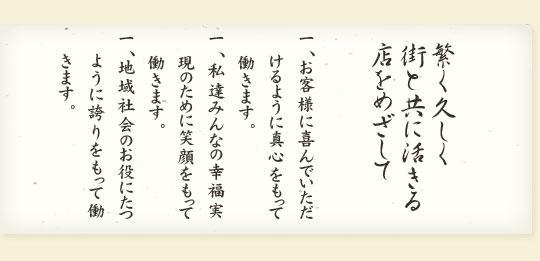 繁く久しく
街と共に活きる
店をめざして
一、お客様に喜んでいただ
けるように真心をもって
働きます。
一、私達みんなの幸福実
現のために笑顔をもって
働きます。
一、地域社会のお役にたつ
ように誇りをもって働
きます。